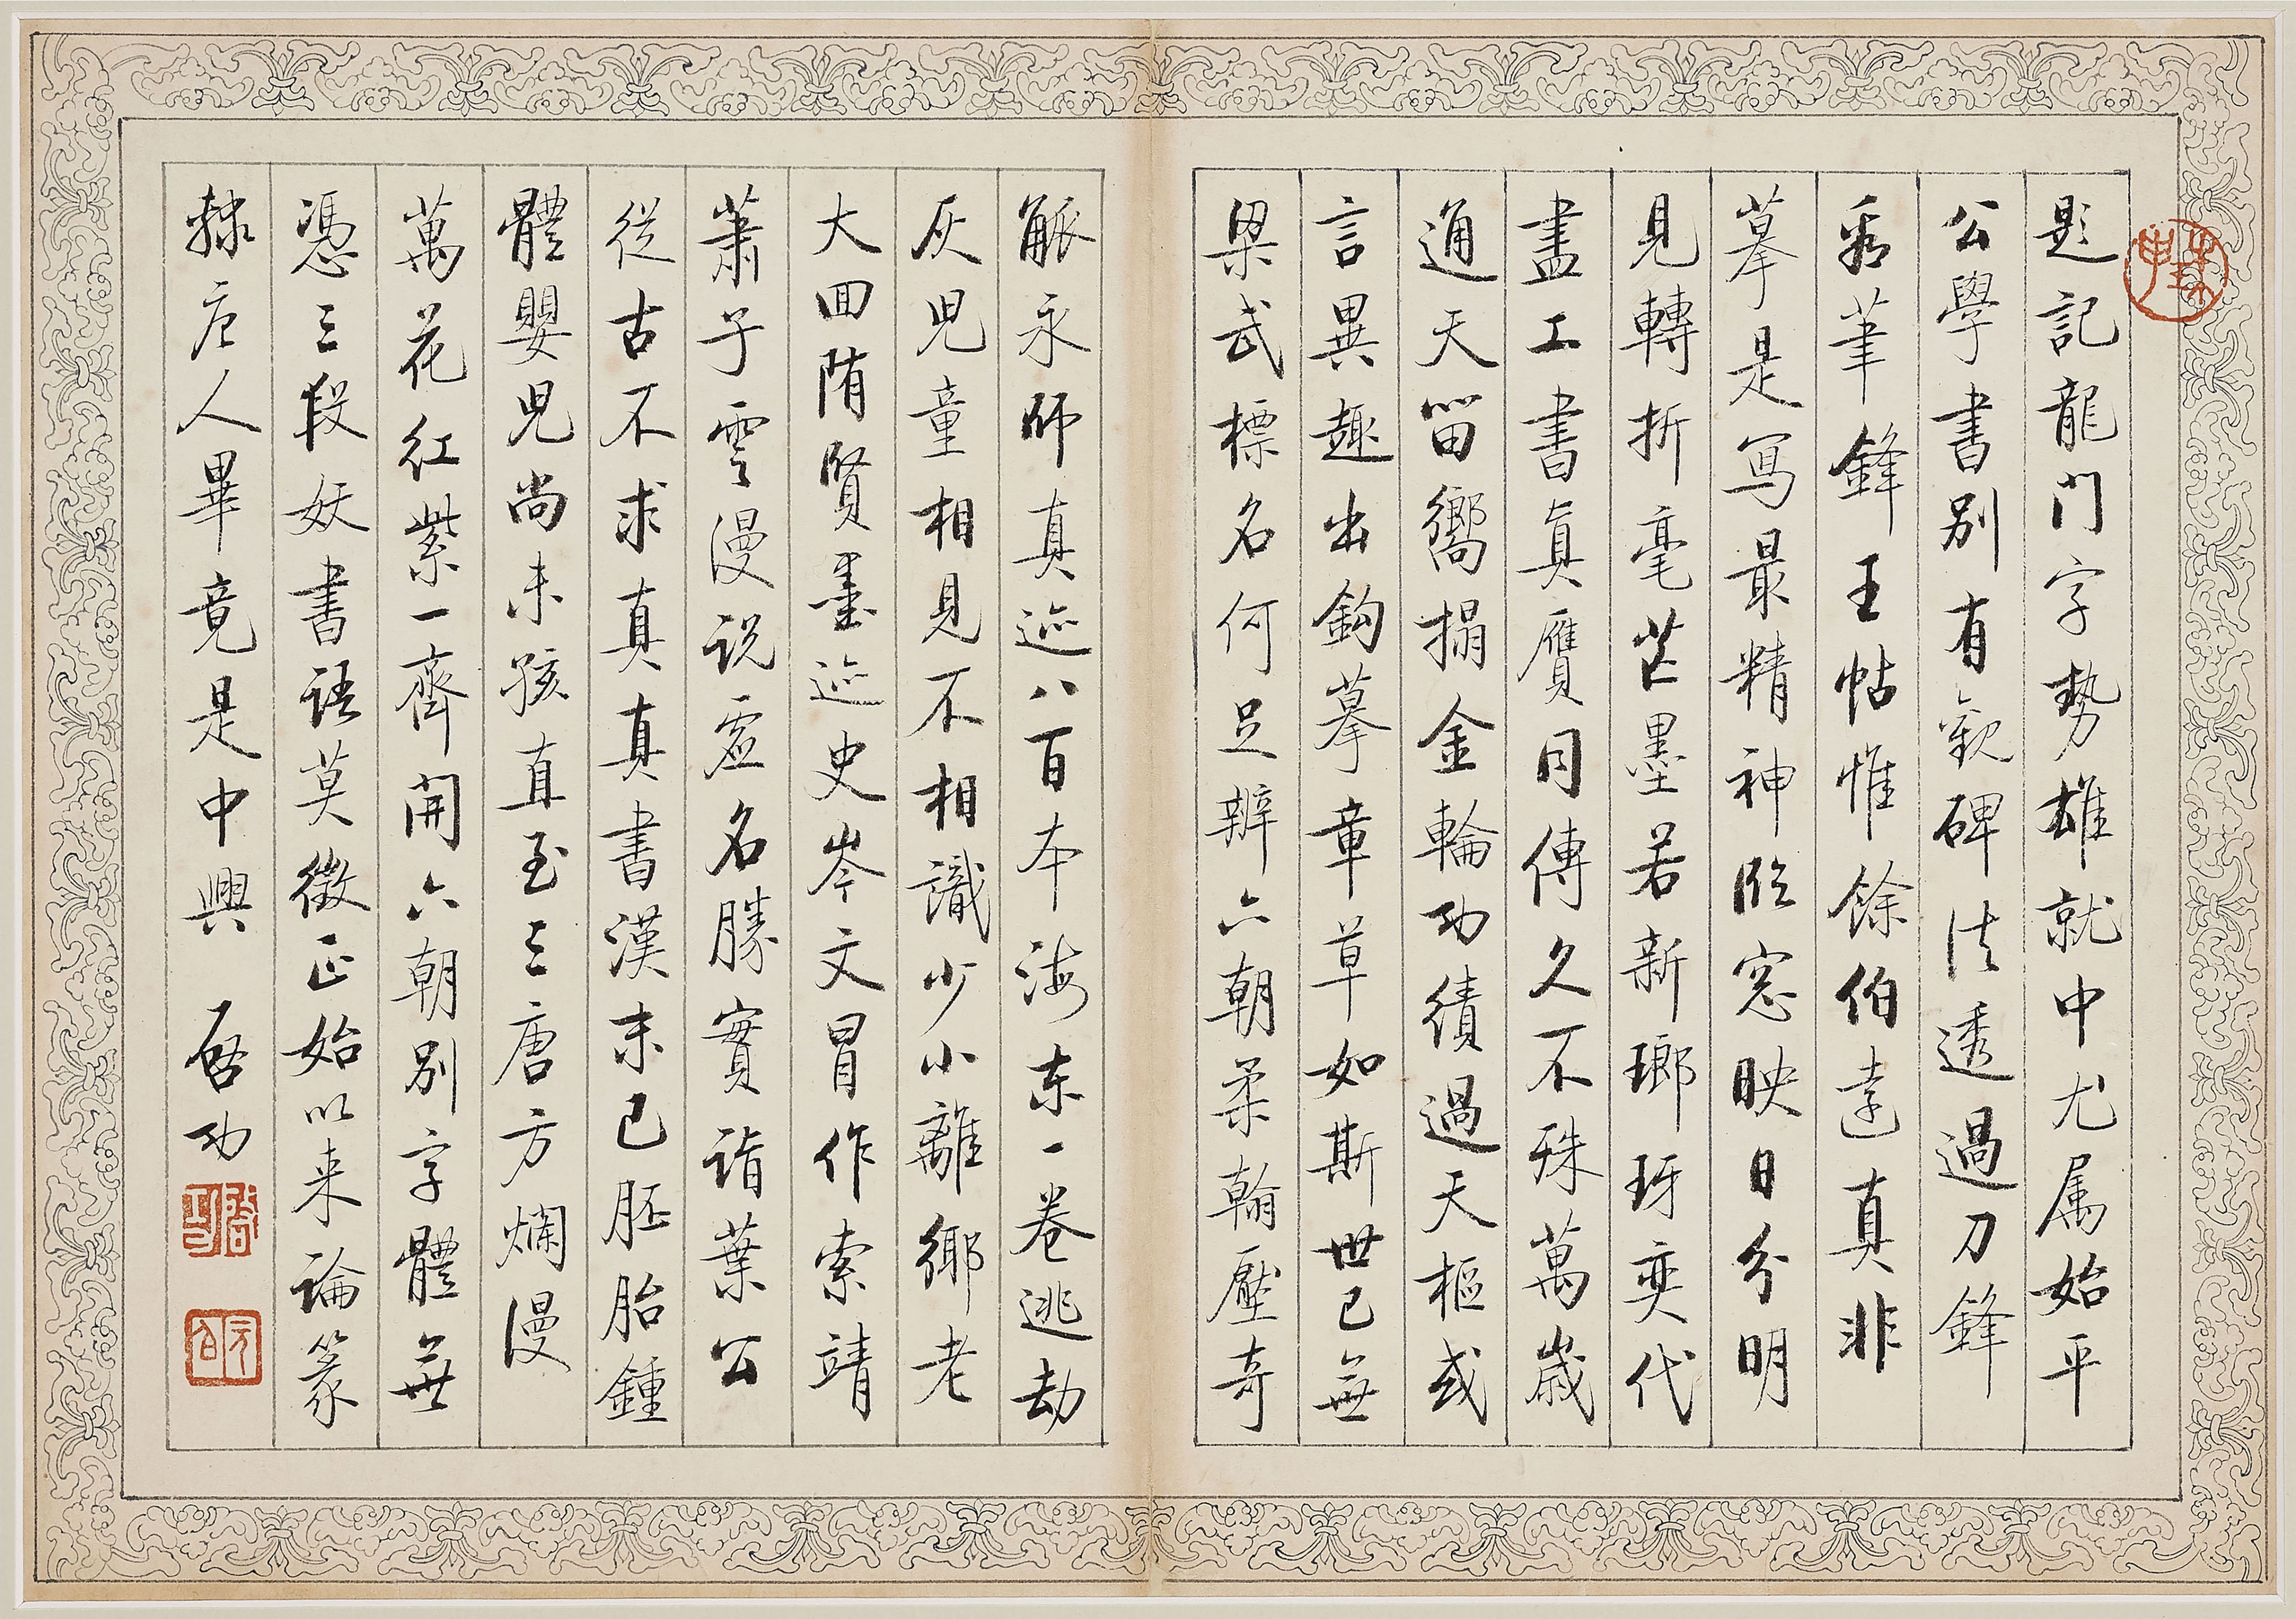 題記龍門字勢雄就中尤属始平
公學書別有觀碑法透過刀鋒
看筆鋒王帖惟餘伯遠真非
摹是寫最精神臨窓映日分明
見轉折毫芒墨若新瑯琊奕代
盡工書真贋同傳久不殊萬歳
通天留響搨金輪功績過天樞或
言異趣出鈎摹章草如斯世已無
梁武標名何足辨六朝柔翰壓奇
觚永師真迹八百本海东一卷逃劫
灰児童相見不相識少小離鄉老
大回隋賢墨迹史岑文冒作索靖
蕭子雲漫説虚名勝實詣葉公
從古不求真真書漢末已胚胎鍾
體嬰児尚未孩直至三唐方爛漫
萬花红紫一齊開六朝別字體無
憑三段妖書語莫徵正始以来論篆
隸唐人畢竟是中興 啓功
啓功
元白